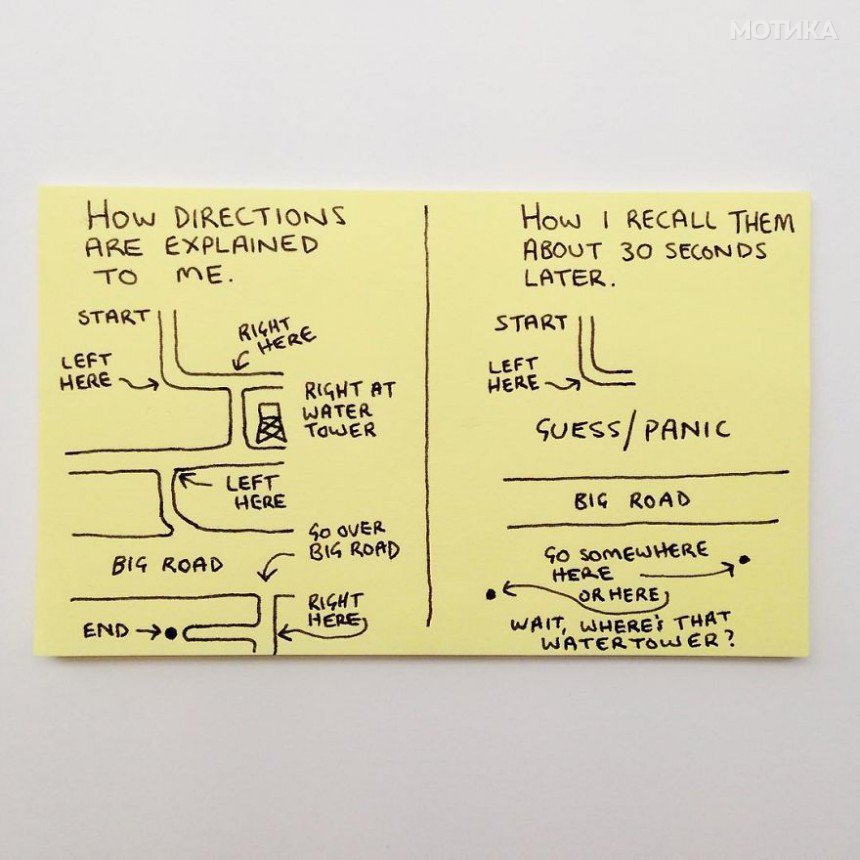 МОТИКА
HOW DIRECTIONS
ARE EXPLAINED
TO ME.
START
RIGHT
HERE
LEFT
HERE
RIGHT AT
WATER
TOWER
LEFT
HERE
GO OVER
BIG ROAD
BIG ROAD
RIGHT
HERE
END
HOW I RECALL THEM
ABOUT 30 SECONDS
LATER.
START
LEFT
HERE
GUESS/PANIC
BIG ROAD
GO SOMEWHERE
HERE
OR HERE
WAIT, WHERE'S THAT
WATERTOWER?